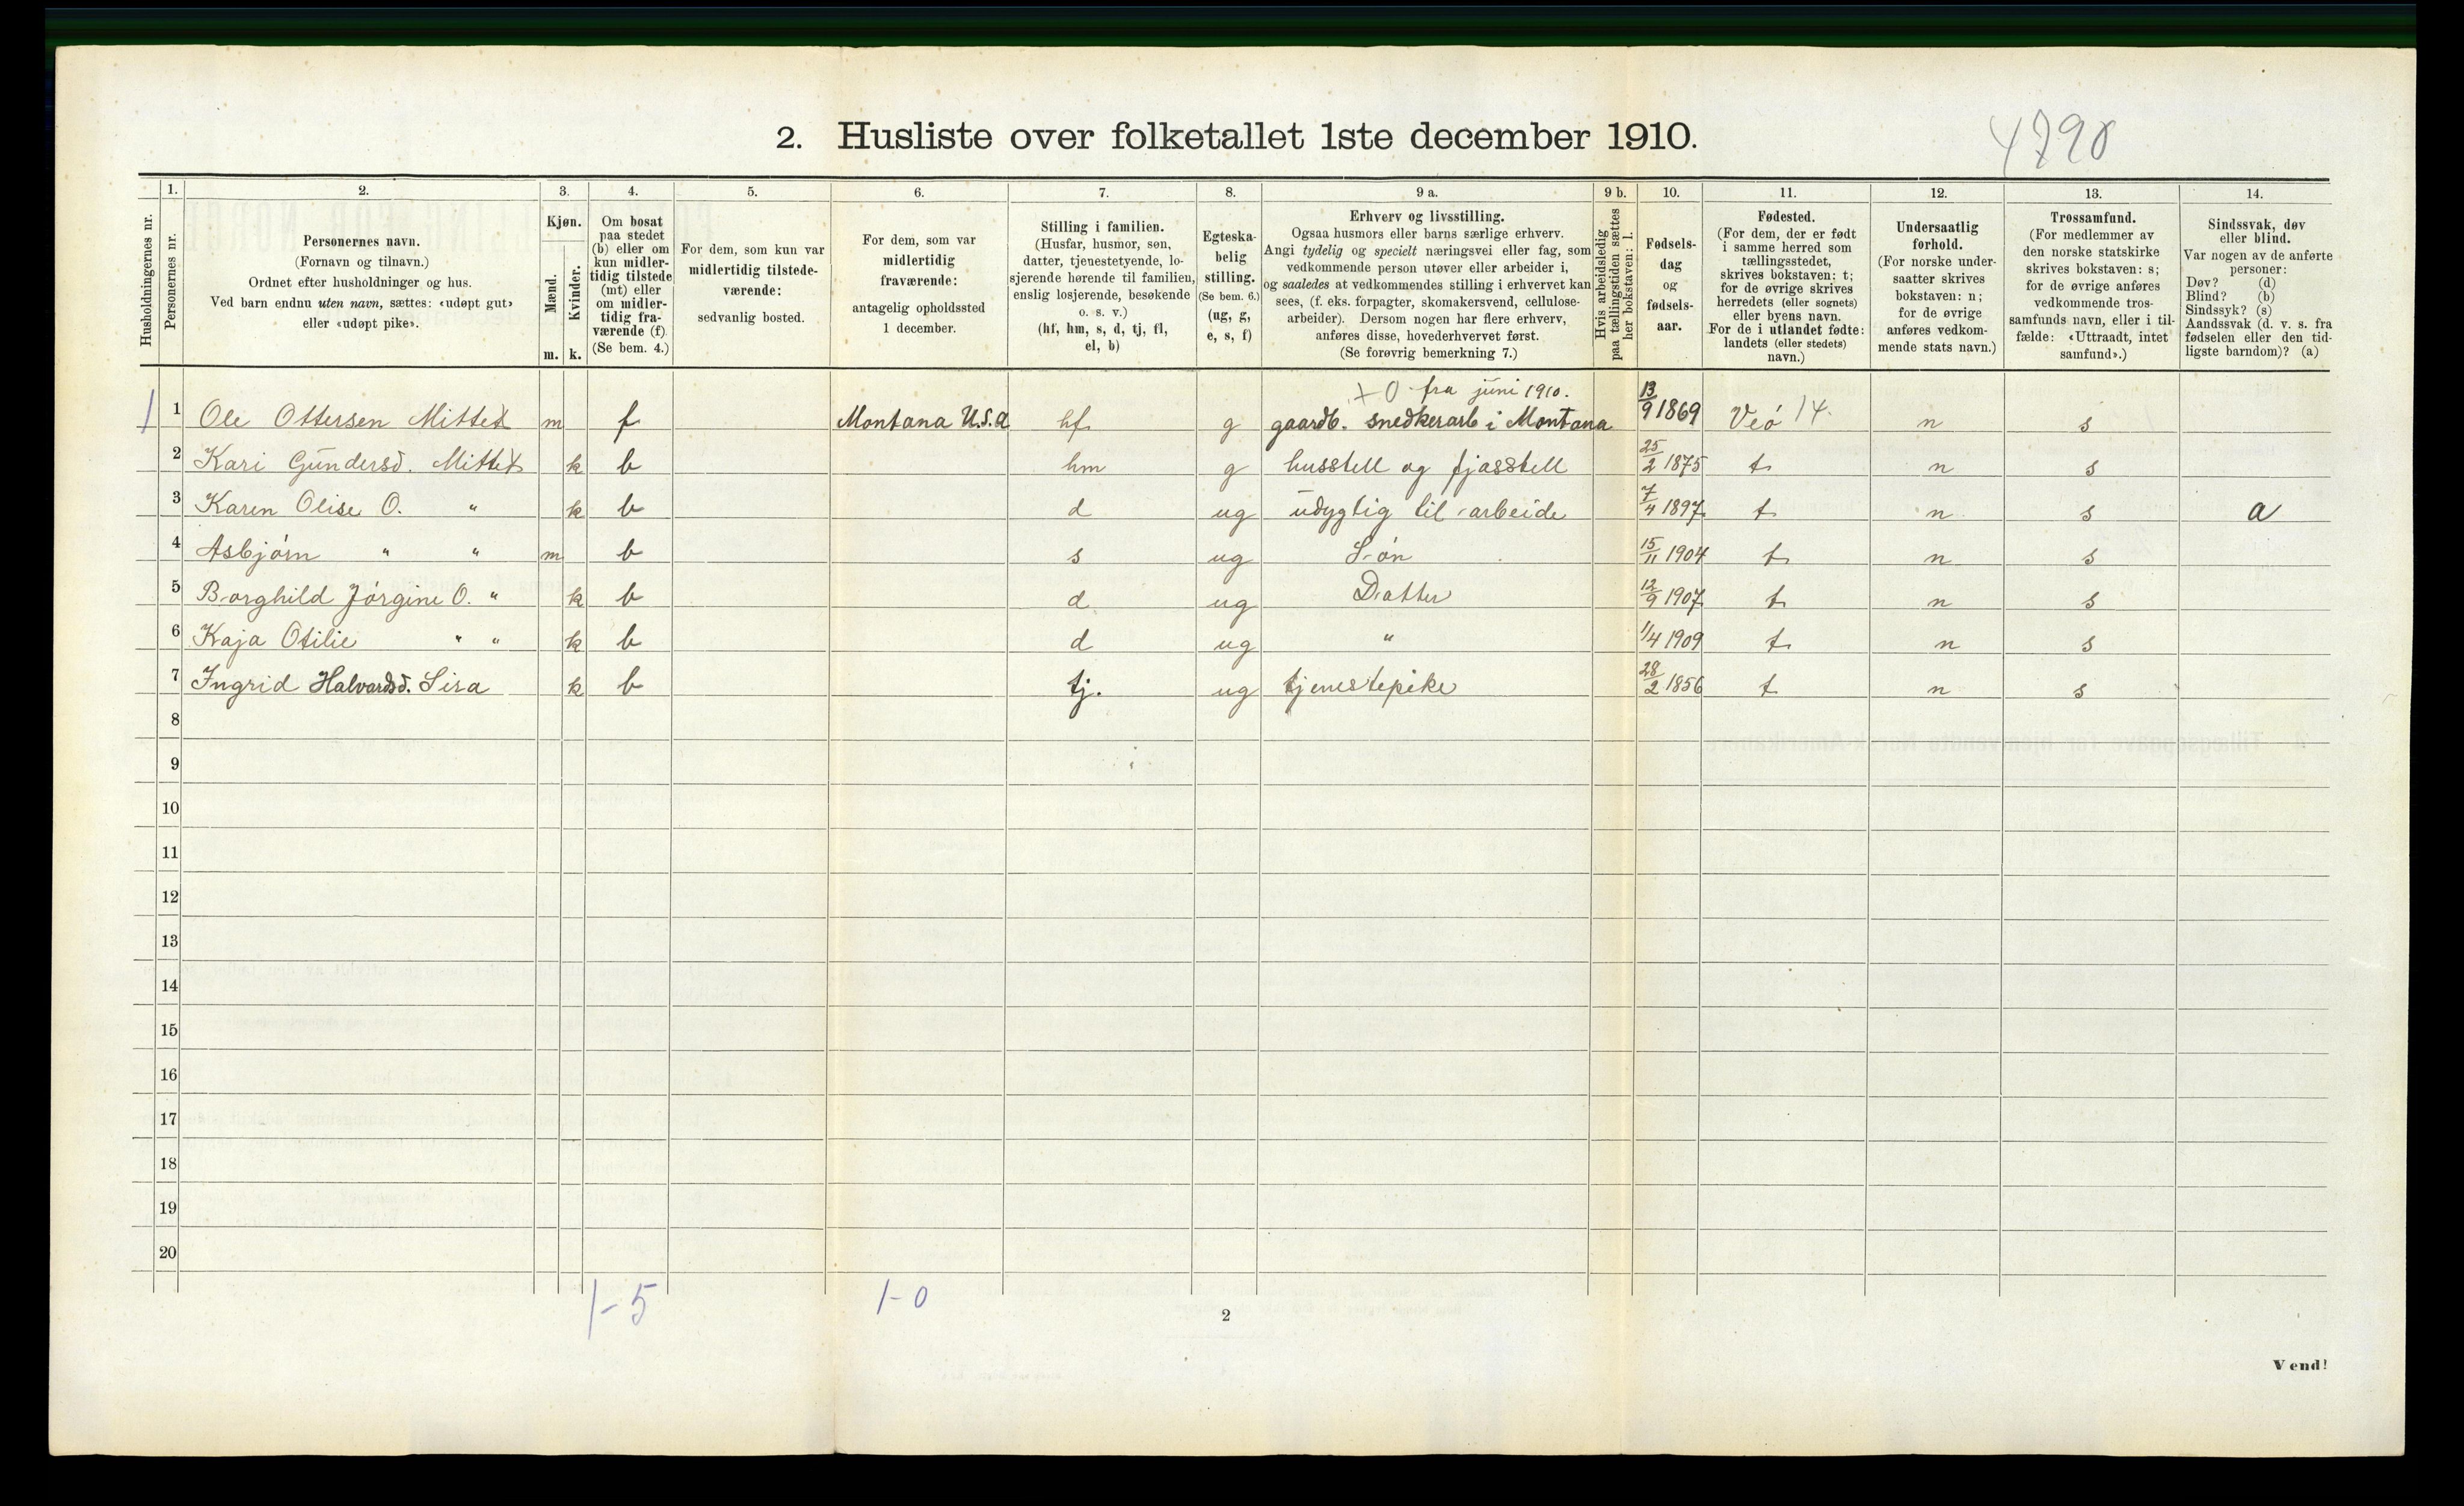 2. Husliste over folketallet 1ste december 1910.
4790
1. 2. 3. 4. 5. 6. 7. 8. 9 a. 9 b. 10. 11. 12. 13. 14.
Husholdningernes nr.
Personernes nr.
Personernes navn.
(Fornavn og tilnavn.)
Ordnet efter husholdninger og hus.
Ved barn endnu uten navn, sættes: «udøpt gut»
eller «udøpt pike».
Kjøn.
Mænd.
Kvinder.
m. k.
Om bosat
paa stedet
(b) eller om
kun midler-
tidig tilstede
(mt) eller
om midler-
tidig fra-
værende (f).
(Se bem. 4.)
For dem, som kun var
midlertidig tilstede-
værende:
sedvanlig bosted.
For dem, som var
midlertidig
fraværende:
antagelig opholdssted
1 december.
Stilling i familien.
(Husfar, husmor, søn,
datter, tjenestetyende, lo-
sjerende hørende til familien,
enslig losjerende, besøkende
o. s. v.)
(hf, hm, s, d, tj, fl,
el, b)
Egteska-
belig
stilling.
(Se bem. 6.)
(ug, g,
e, s, f)
Erhverv og livsstilling.
Ogsaa husmors eller barns særlige erhverv.
Angi tydelig og specielt næringsvei eller fag, som
vedkommende person utøver eller arbeider i,
og saaledes at vedkommendes stilling i erhvervet kan
sees, (f. eks. forpagter, skomakersvend, cellulose-
arbeider). Dersom nogen har flere erhverv,
anføres disse, hovederhvervet først.
(Se forøvrig bemerkning 7.)
Hvis arbeidsledig
paa tællingstiden sættes
her bokstaven: l.
Fødsels-
dag
og
fødsels-
aar.
Fødested.
(For dem, der er født
i samme herred som
tællingsstedet,
skrives bokstaven: t;
for de øvrige skrives
herredets (eller sognets)
eller byens navn.
For de i utlandet fødte:
landets (eller stedets)
navn.)
Undersaatlig
forhold.
(For norske under-
saatter skrives
bokstaven: n;
for de øvrige
anføres vedkom-
mende stats navn.)
Trossamfund.
(For medlemmer av
den norske statskirke
skrives bokstaven: s;
for de øvrige anføres
vedkommende tros-
samfunds navn, eller i til-
fælde: «Uttraadt, intet
samfund».)
Sindssvak, døv
eller blind.
Var nogen av de anførte
personer:
Døv? (d)
Blind? (b)
Sindssyk? (s)
Aandssvak (d. v. s. fra
fødselen eller den tid-
ligste barndom)? (a)
+ 0 fra juni 1910.
1 1 Ole Ottersen Mittet m f Montana U.S.A hf g gaardb. snedkerarb i Montana 13/9 1869 Veø 14. n s
2 Kari Gundersd. Mittet k b hm g husstell og fjøsstell 25/2 1875 t n s
3 Karen Olise O. " k b d ug udygtig til arbeide 7/4 1897 t n s a
4 Asbjørn " " m b s ug Søn 15/11 1904 t n s
5 Borghild Jørgine O. " k b d ug Datter 12/9 1907 t n s
6 Kaja Otilie " " k b d ug " 1/4 1909 t n s
7 Ingrid Halvardsd. Lira k b tj. ug tjenestepike 28/2 1856 t n s
8
9
10
11
12
13
14
15
16
17
18
19
20
1-5 1-0
2
Vend!